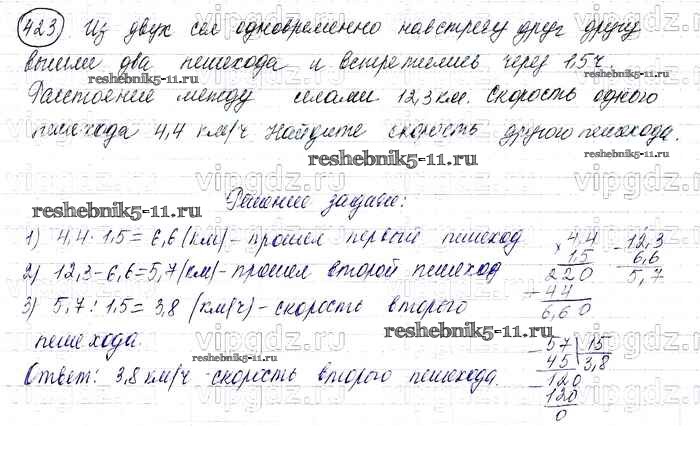 423 Из двух сел одновременно навстречу друг другу
вышли два пешехода и встретились через 1,5 ч.
reshebnik5-11.ru
Расстояние между селами 12,3 км. Скорость одного
vipgdz.ru
пешехода 4,4 км/ч. Найдите скорость другого пешехода.
reshebnik5-11.ru
vipgdz.ru
Решение задачи:
reshebnik5-11.ru
1) 4,4 · 1,5 = 6,6 (км) - прошел первый пешеход
2) 12,3 - 6,6 = 5,7 (км) - прошел второй пешеход
3) 5,7 : 1,5 = 3,8 (км/ч) - скорость второго
пешехода.
reshebnik5-11.ru
Ответ: 3,8 км/ч - скорость второго пешехода.
× 4,4
1,5
220
+ 44
6,60
- 12,3
6,6
5,7
- 57 | 15
45 3,8
- 120
120
0